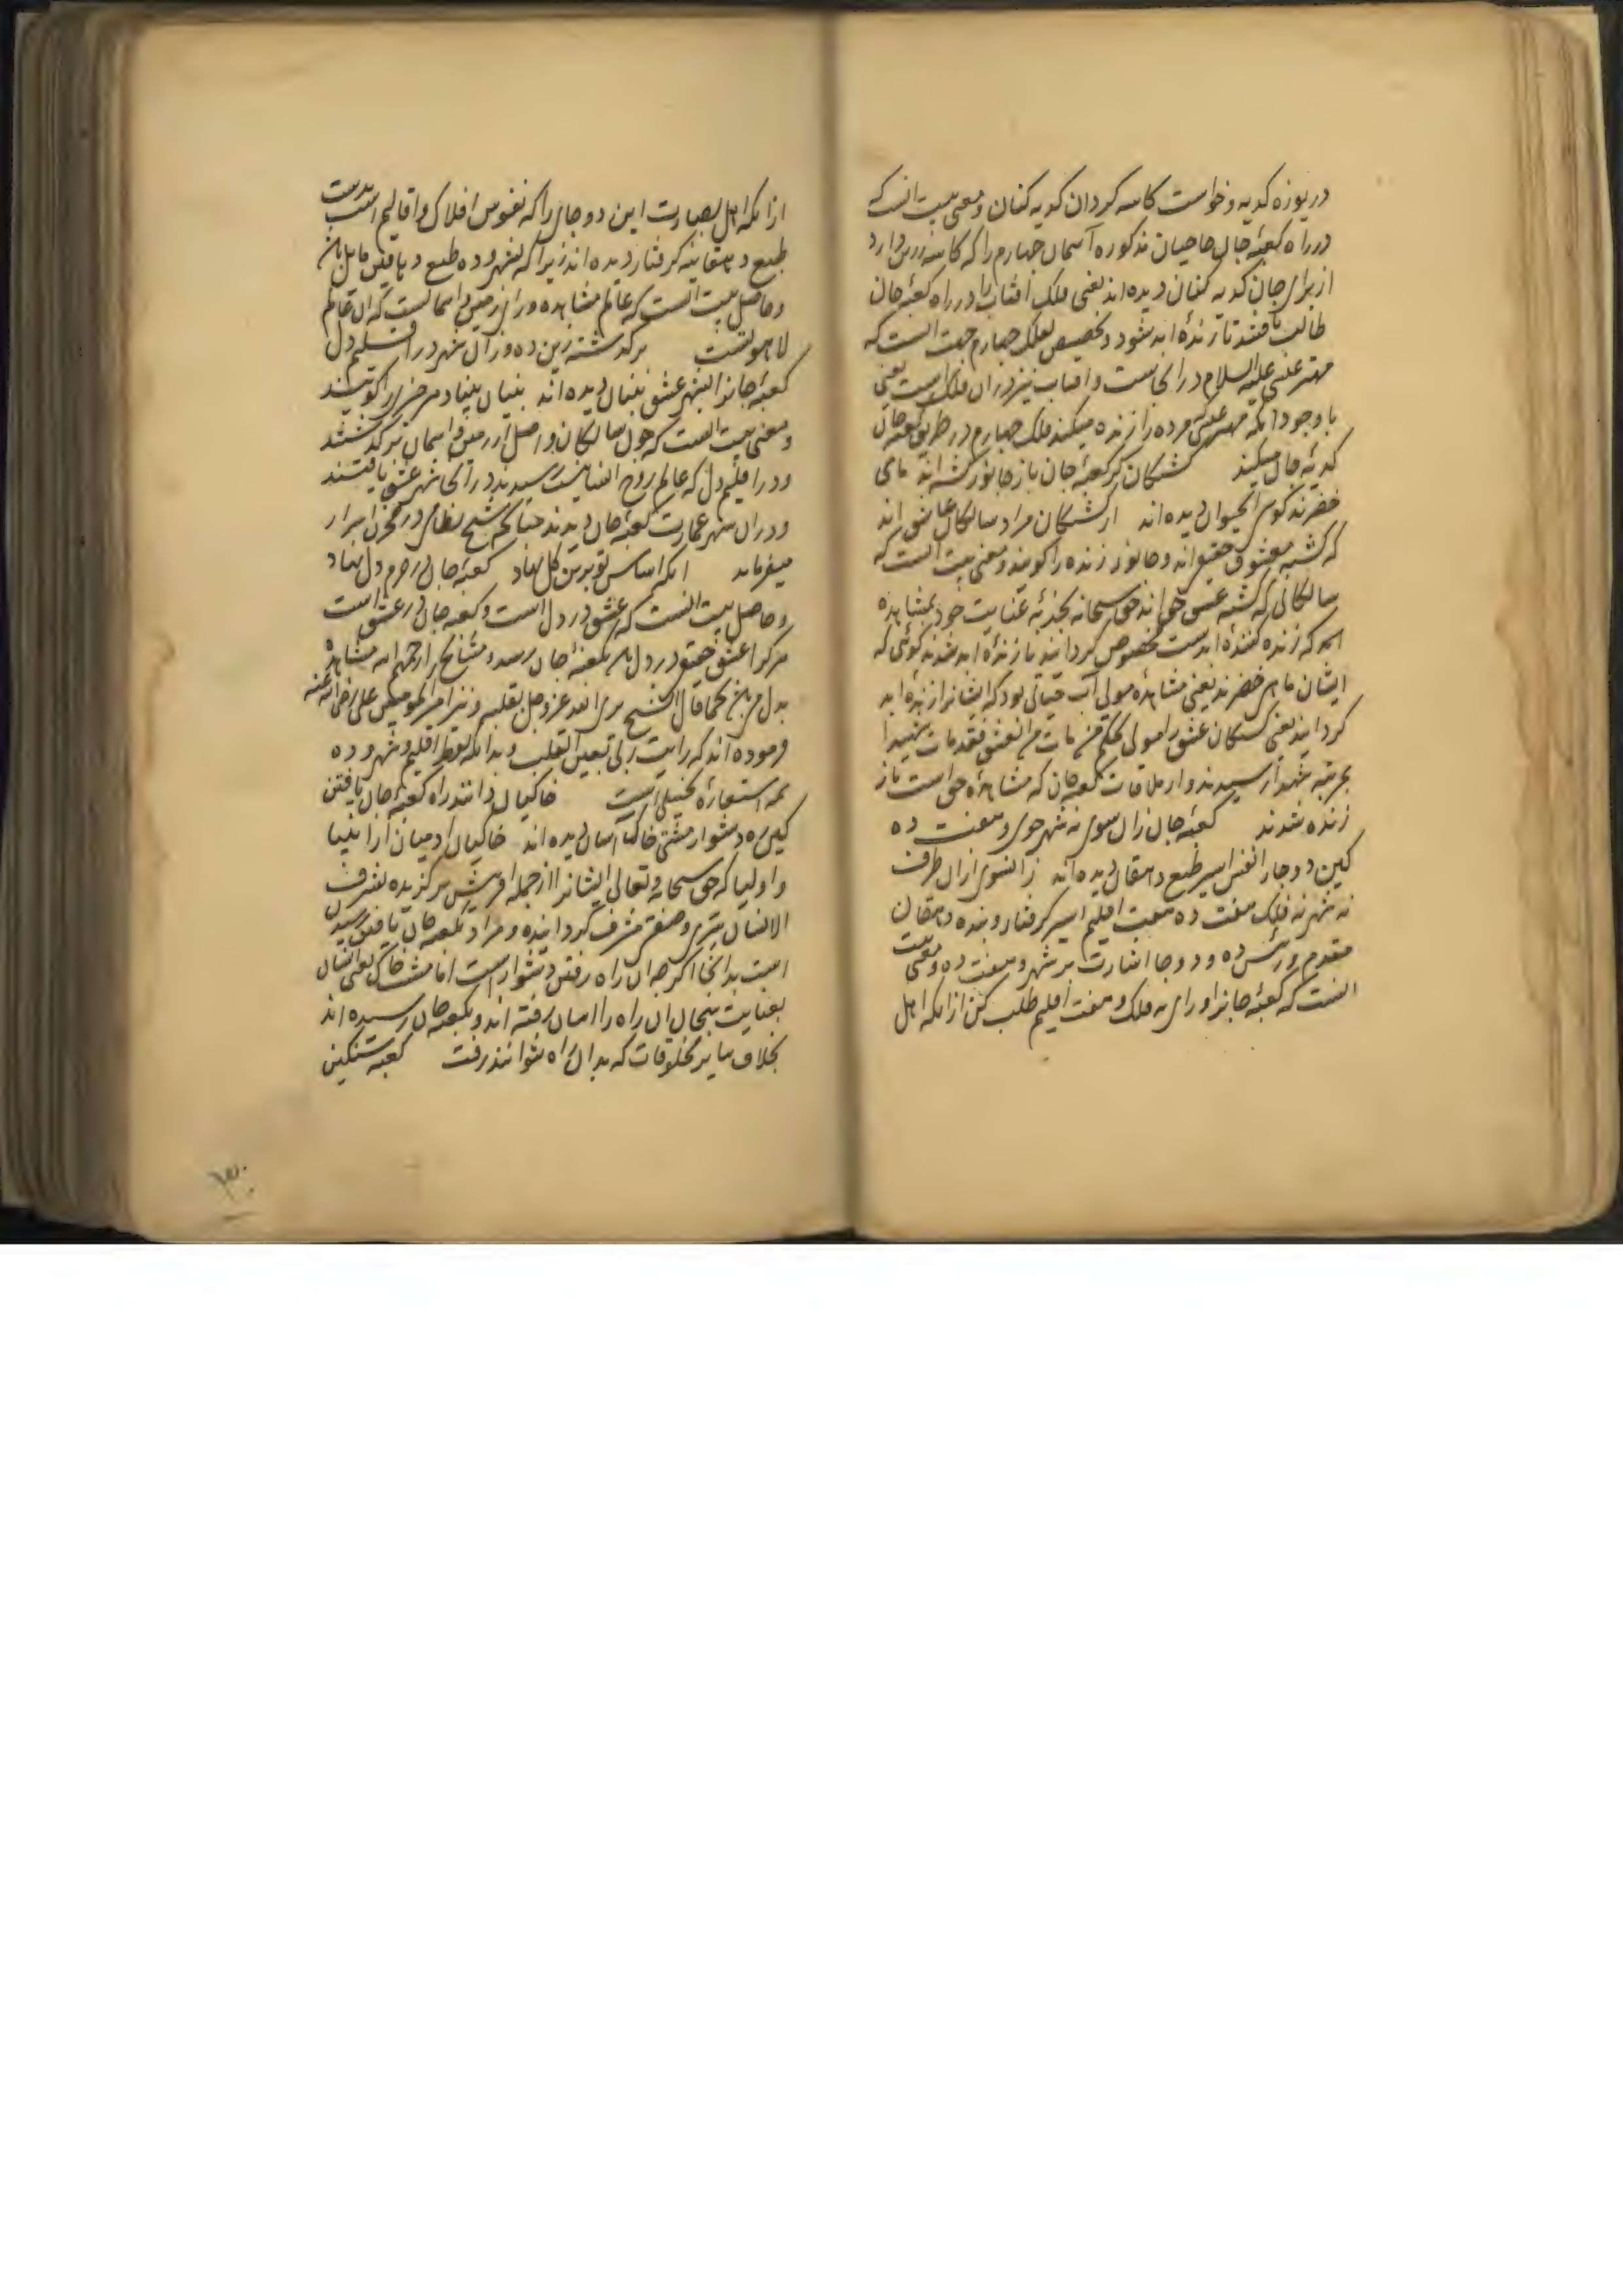 دریوزه کدیه و خواست کاسه کردان کدیه کنان و معنی بیت انست که
در راه کعبهٔ جان حاجیان مذکوره آسمان چهارم را که کاسه زرین دارد
از برای جان کدیه کنان دیده اند یعنی فلک افتاب را در راه کعبهٔ جان
طالب یافتند تا زندهٔ ابد شود و تخصیص فلک چهارم جهت انست که
مهتر عیسی علیه السلام در انجاست و افتاب نیز در ان فلک است یعنی
با وجود انکه مهتر عیسی مرده را زنده میکند فلک چهارم در طریق کعبه جان
کدیهٔ جان میکند کشتکان کز کعبهٔ جان باز جانور کشته اند ماهی
خضرند کوی الحیوان دیده اند از کشتکان مراد سالکان عاشق اند
که کشته معشوق حقیقی اند و جانور زنده را کویند و معنی بیت انست که
سالکانی که کشته عشق حق اند حق سبحانه بجذبهٔ عنایت خود بمشاهده
انکه زنده کنندهٔ ابدست مخصوص کردانید تا زندهٔ ابد شدند کوئی که
ایشان ماهی خضرند یعنی مشاهدهٔ مولی آب حیاتی بود که ایشانرا زندهٔ ابد
کردانید یعنی کشتکان عشق را مولی بحکم من مات من العشق فقد مات شهیدا
بمرتبه شهدا رسیدند و از ملاقات کعبه جان که مشاهدهٔ حق است باز
زنده شدند کعبهٔ جان زان سوی نه شهر جوی و هفت ده
کین دو جا را نفس امیر طبع دهقان دیده اند زانسوی ازان طرف
نه شهر نه فلک هفت ده هفت اقلیم اسیر کرفتار و بنده دهقان
مقدم و رئیس ده و دو جا اشارت بر شهر و هفت ده و معنی بیت
انست که کعبهٔ جانرا ورای نه فلک و هفت اقلیم طلب کن ازانکه اهل
ازانکه اهل بصیارت این دو جای را که نفوس افلاک و اقالیم است بدست
طبع دهقانیه کرفتار دیده اند زیرا که نه شهر و ده طبع و یافتن مایل بان
و حاصل بیت انست که عالم مشاهده ورای زمین و اسمانست که ان عالم
لاهوتست برکذشته زین ده و زان شهر در اقلیم دل
کعبهٔ جانرا بشهر عشق بنیان دیده اند بنیان بنیاد هر چیزی را کویند
و معنی بیت انست که چون سالکان واصل از زمین و اسمان برکذشتند
و در اقلیم دل که عالم روح انسانیست رسیدند در انجا شهر عشق یافتند
و دران شهر عمارت کعبهٔ جان دیدند چنانکه شیخ نظامی در مخزن اسرار
میفرماید انکه اساس تو برین کل نهاد کعبهٔ جان در حرم دل نهاد
و حاصل بیت انست که عشق در دل است و کعبه جان در عشق است
هرکرا عشق حقیقی در دل بکعبهٔ جان رسد و مشایخ را رحمهم الله مشاهدهٔ
بدل کما قال الشیخ یری الله عز و جل بقلبه و نیز امیر المومنین علی رضی الله عنه
فرموده اند که رایت ربی بعین القلب و بدانکه لفظ اقلیم و شهر و ده
همه استعارهٔ تخییلی است خاکیان دانند راه کعبهٔ جان یافتن
کین ره دشوار مشتی خاک اسان دیده اند خاکیان ادمیان از انبیا
و اولیا که حق سبحانه و تعالی ایشانرا از جمله افرینش برکزیده بشرف
الانسان سری و صفتی مشرف کردانیده و مراد بکعبه جان یافتن رسیدن
است بدانجا اکرچه ان راه رفتن دشوار است اما مشت خاک یعنی انسان
بعنایت سبحان ان راه را اسان رفته اند و بکعبه جان رسیده اند
بخلاف سایر مخلوقات که بدان راه نتوانند رفت کعبه سنکین